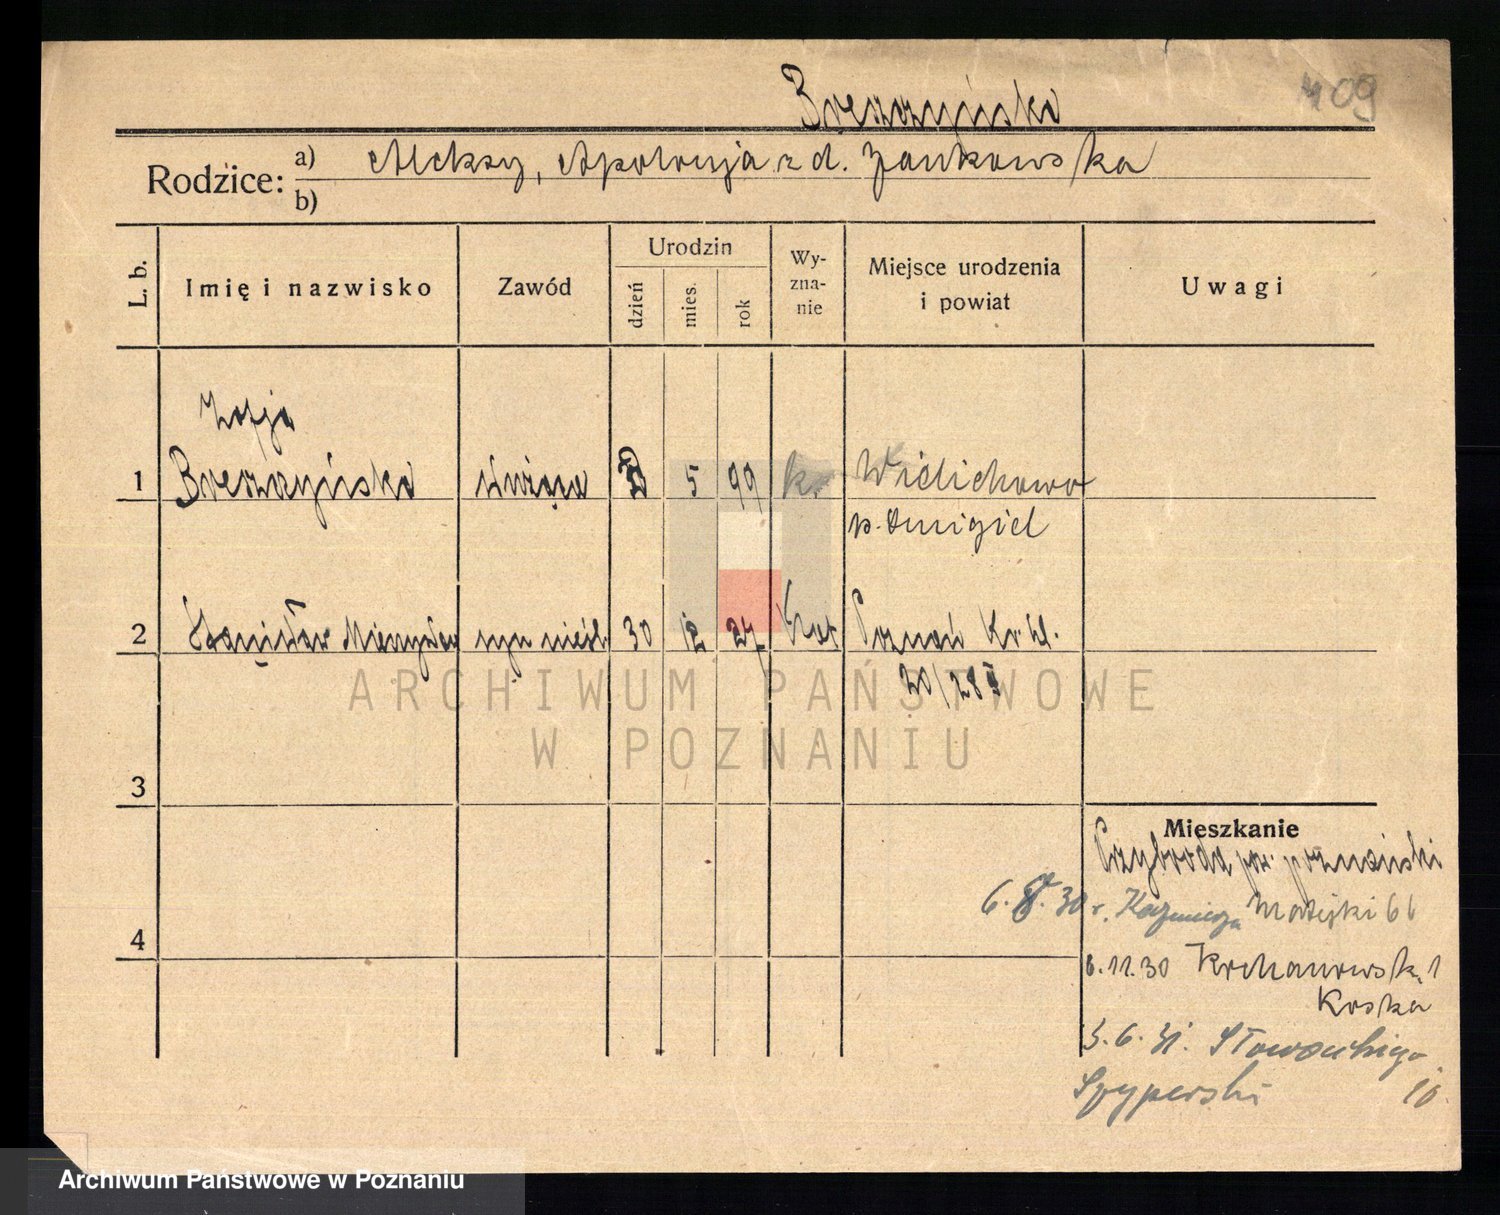 409
Breszczyńska
Rodzice:
a) Aleksy, Apolonja z d. Jankowska
b)
L. b.
Imię i nazwisko
Zawód
Urodzin
dzień
mies.
rok
Wy-
zna-
nie
Miejsce urodzenia
i powiat
Uwagi
Zofja
1 Breszczyńska służąca 5 99 kt Wielichowo
p. Śmigiel
2 Stanisław Mieczysław syn nieśl. 30 12 27 kat Poznań
20/28
3
4
Mieszkanie
Przybroda poznański
30 r. Matejki 66
6.11.30 Kochanowsk. 1
Koska
3.6.31. Słowackiego
Szyperski 10.
ARCHIWUM PAŃSTWOWE
W POZNANIU
Archiwum Państwowe w Poznaniu